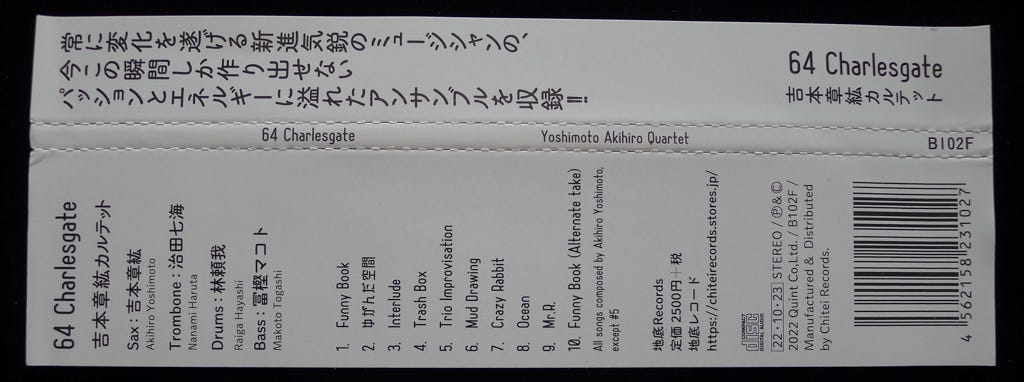 常に変化を遂げる新進気鋭のミュージシャンの、
今この瞬間しか作り出せない
パッションとエネルギーに溢れたアンサンブルを収録!!
64 Charlesgate
吉本章紘カルテット
64 Charlesgate
Yoshimoto Akihiro Quartet
B102F
64 Charlesgate
吉本章紘カルテット
Sax：吉本章紘
Akihiro Yoshimoto
Trombone：治田七海
Nanami Haruta
Drums：林頼我
Raiga Hayashi
Bass：富樫マコト
Makoto Togashi
1. Funny Book
2. ゆがんだ空間
3. Interlude
4. Trash Box
5. Trio Improvisation
6. Mud Drawing
7. Crazy Rabbit
8. Ocean
9. Mr.R.
10. Funny Book (Alternate take)
All songs composed by Akihiro Yoshimoto,
except #5
地底Records
定価 2500円＋税
地底レコード
https://chiteirecords.stores.jp/
COMPACT
disc
DIGITAL AUDIO
22・10・23 STEREO / Ⓟ&©
2022 Quint Co.,Ltd. / B102F /
Manufactured & Distributed
by Chitei Records.
4 562158 231027